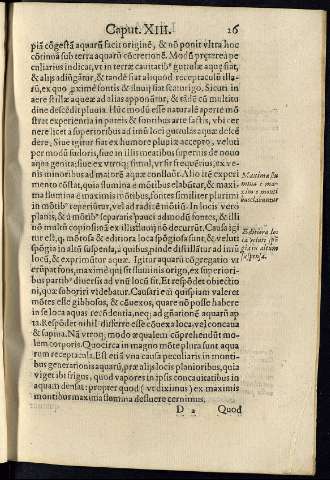 Caput. XIII. 26
piã cõgestã aquarũ facit originẽ, & nõ ponit vltra hoc
cõtinuã sub terra aquarũ cõcretionẽ. Modũ præterea pe
culiarius indicat, vt in terræ cauitatibº guttulæ aquę fiãt,
& alijs adiũgãtur, & tandẽ fiat aliquod receptaculũ illa-
rũ, ex quo proximè fontis & fluuij fiat scaturigo. Sicut in
aere stillæ aqueæ ad alias apponũtur, & tãdẽ cũ multitu
dine descẽdit pluuia. Hũc modũ esse naturalẽ apertè mõ
strat experientia in puteis & fontibus arte factis, vbi cer
nere licet à superioribus ad imũ loci guttulas aquæ descẽ
dere. Siue igitur fiat ex humore pluuiæ accepto, veluti
per modũ sudoris, siue in illis meatibus supernis de nouo
aqua genita, siue ex vtroq; simul, vt sit frequẽtius, ex ve-
nis minoribus ad maiorẽ aquæ confluũt. Alio itẽ experi
mento cõstat, quia flumina è mõtibus elabũtur, & maxi-
ma flumina ex maximis mõtibus, fontes similiter plurimi
in mõtibº reperiũtur, vel ad radices mõtiũ. In locis verò
planis, & à mõtibº separatis pauci admodũ fontes, & illi
nõ multũ copiosi nõnisi ex illis fluuij nõ decurrũt. Causa igi
tur est, quia montes & editiora loca spõgiosa sunt, & veluti
spõgia in altũ suspensa, à quibus, pluuie distillãtur ad imũ
locũ, & exprimũtur aquæ. Igitur aquarũ cõgregatio vt
erũpat fons, maximè qui sit fluminis origo, ex superiori-
bus partibº diuersis ad vnũ locũ fit. Et respõdet obiectio
ni, quæ suboriri videbatur. Causari em quispiam valeret
mõtes esse gibbosos, & cõuexos, quare nõ posse habere
in se loca aquas recõdentia, neq; ad gñationẽ aquarũ ap
ta. Respõdet nihil differre esse cõuexa loca, vel concaua
& sapina. Nã vtroq; modo æqualem cõprehendũt mo-
lem corporis. Quocirca in magno mõte plura sunt aqua
rum receptacula. Est etiã vna causa peculiaris in monti-
bus generationis aquarũ, præ alijs locis planioribus, quia
viget ibi frigus, quod vapores in ipsis concauitatibus in
aquam densat: propter quod (vt diximus) ex maximis
montibus maxima flumina defluere cernimus.
Maxima flu
mina è ma-
ximis monti
bus elabuntur
Editiora lo-
ca veluti spõ
gia in altum
suspensa.
D 2 Quod